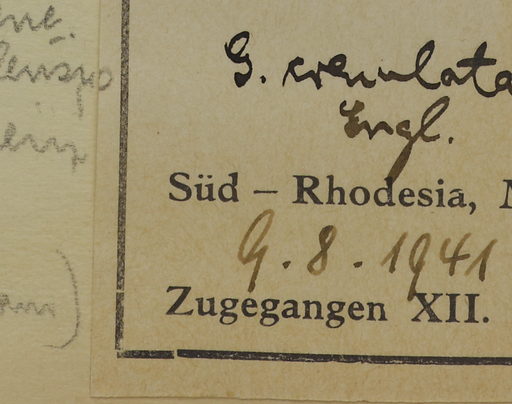 G. crenulata
Engl.
Süd – Rhodesia,
9.8.1941
Zugegangen XII.